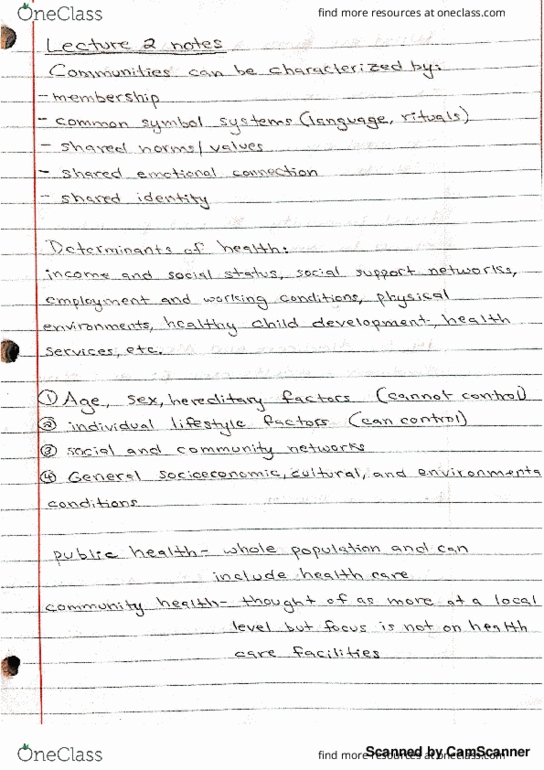 OneClass
find more resources at oneclass.com
Lecture 2 notes
Communities can be characterized by:
- membership
- common symbol systems (language, rituals)
- shared norms/values
- shared emotional connection
- shared identity
Determinants of health:
income and social status, social support networks,
employment and working conditions, physical
environments, healthy child development, health
services, etc.
① Age, sex, hereditary factors (cannot control)
② individual lifestyle factors (can control)
③ social and community networks
④ General socioeconomic, cultural, and environments
conditions
public health- whole population and can
include health care
community health- thought of as more at a local
level but focus is not on health
care facilities
OneClass
find more resources at oneclass.com
Scanned by CamScanner